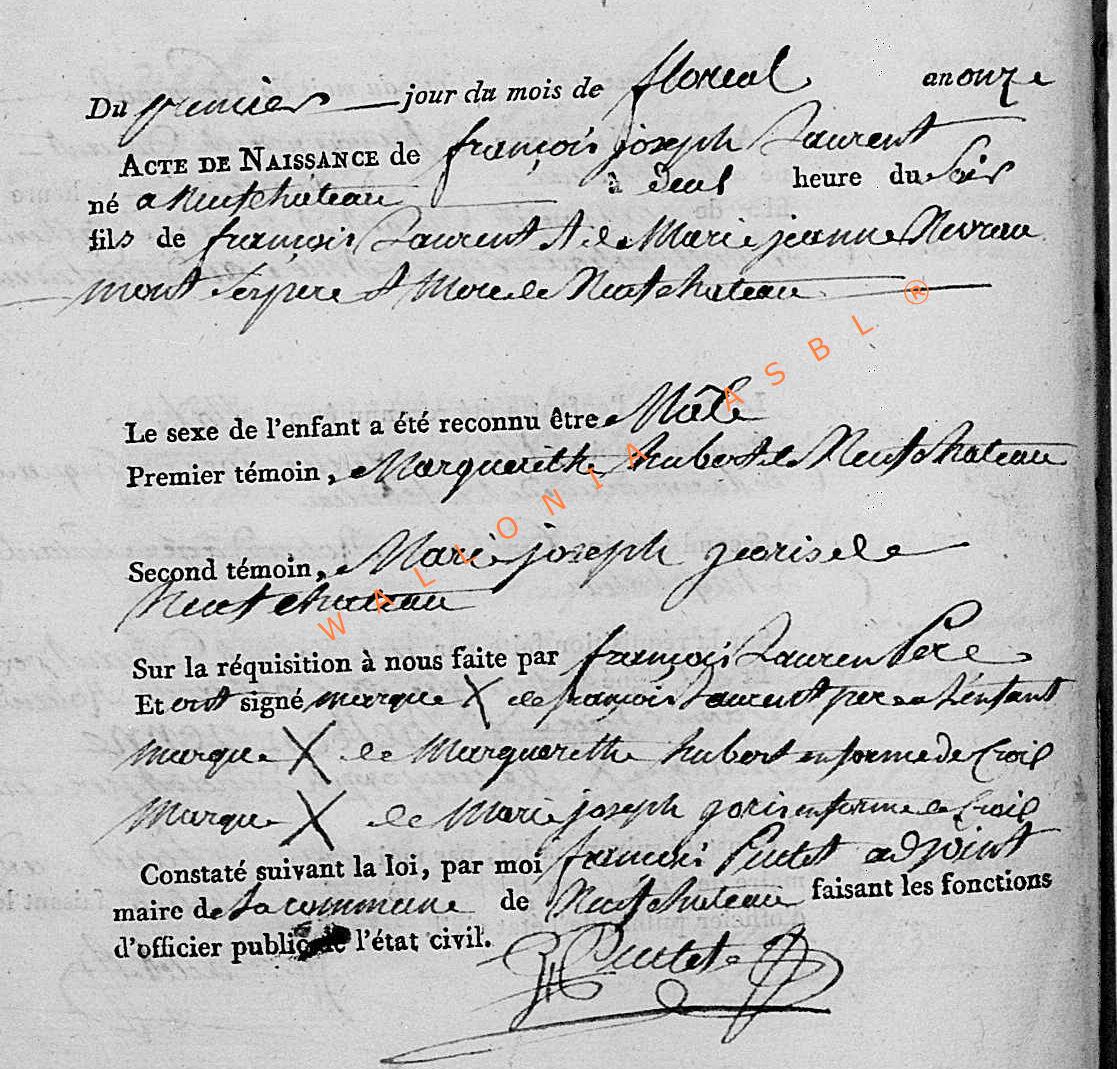 Du premier jour du mois de floreal an onze
ACTE DE NAISSANCE de françois joseph Laurent
né a Neufchateau à deux heure du Soir
fils de françois Laurent & de Marie jeanne Nevrau
mont Ses pere & Mere de Neufchateau
Le sexe de l'enfant a été reconnu être Mâle
Premier témoin, Marguerithe hubert de Neufchateau
Second témoin, Marie joseph gioris de
Neufchateau
Sur la réquisition à nous faite par françois Lauren Pere
Et ont signé marque X de françois Laurent pere a L'enfant
marque X de Marguerithe hubert en forme de Croix
Marque X de Marie joseph goris en forme de Croix
Constaté suivant la loi, par moi françois adjoint
maire de La commune de Neufchateau faisant les fonctions
d'officier public de l'état civil.
WALLONIA ASBL ®